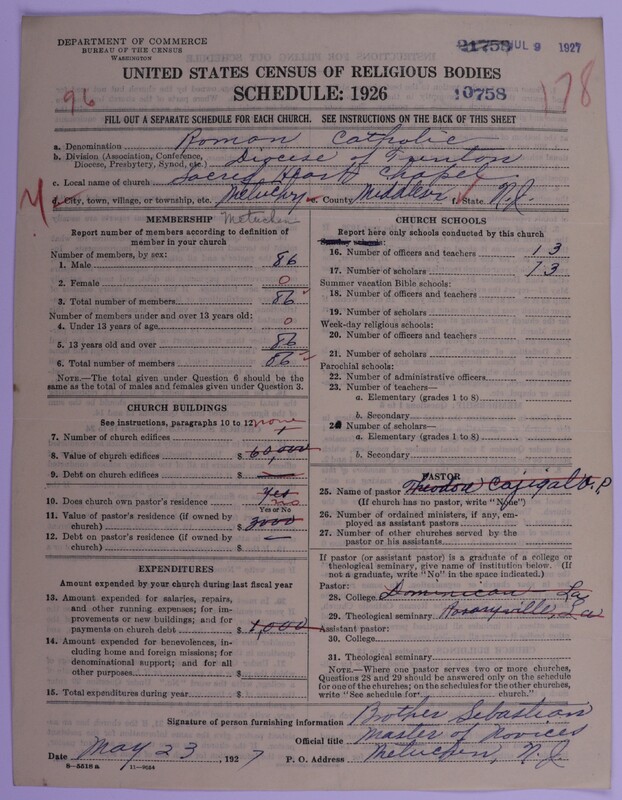 DEPARTMENT OF COMMERCE
BUREAU OF THE CENSUS
WASHINGTON
21758 JUL 9 1927
UNITED STATES CENSUS OF RELIGIOUS BODIES
SCHEDULE: 1926
96
10758
178
FILL OUT A SEPARATE SCHEDULE FOR EACH CHURCH. SEE INSTRUCTIONS ON THE BACK OF THIS SHEET
a. Denomination Roman Catholic
b. Division (Association, Conference, Diocese, Presbytery, Synod, etc.) Diocese of Trenton
c. Local name of church Sacred Heart Chapel
d. City, town, village, or township, etc. Metuchen e. County Middlesex f. State N.J.
MEMBERSHIP Metuchen
Report number of members according to definition of
member in your church
Number of members, by sex:
1. Male 86
2. Female 0
3. Total number of members 86
Number of members under and over 13 years old:
4. Under 13 years of age 0
5. 13 years old and over 86
6. Total number of members 86
NOTE.—The total given under Question 6 should be the
same as the total of males and females given under Question 3.
CHURCH BUILDINGS
See instructions, paragraphs 10 to 12 none
7. Number of church edifices 1
8. Value of church edifices $ 60,000
9. Debt on church edifices $
10. Does church own pastor's residence Yes no
Yes or No
11. Value of pastor's residence (if owned by
church) $ 3000
12. Debt on pastor's residence (if owned by
church) $ —
EXPENDITURES
Amount expended by your church during last fiscal year
13. Amount expended for salaries, repairs,
and other running expenses; for im-
provements or new buildings; and for
payments on church debt $ 1,000
14. Amount expended for benevolences, in-
cluding home and foreign missions; for
denominational support; and for all
other purposes $
15. Total expenditures during year $
CHURCH SCHOOLS
Report here only schools conducted by this church
Sunday schools:
16. Number of officers and teachers 13
17. Number of scholars 73
Summer vacation Bible schools:
18. Number of officers and teachers
19. Number of scholars
Week-day religious schools:
20. Number of officers and teachers
21. Number of scholars
Parochial schools:
22. Number of administrative officers
23. Number of teachers—
a. Elementary (grades 1 to 8)
b. Secondary
24. Number of scholars—
a. Elementary (grades 1 to 8)
b. Secondary
PASTOR
25. Name of pastor Theodore Cajigal O.P.
(If church has no pastor, write "None")
26. Number of ordained ministers, if any, em-
ployed as assistant pastors
27. Number of other churches served by the
pastor or his assistants
If pastor (or assistant pastor) is a graduate of a college or
theological seminary, give name of institution below. (If
not a graduate, write "No" in the space indicated.)
Pastor:
28. College Dominican La
29. Theological seminary Rosaryville, La
Assistant pastor:
30. College
31. Theological seminary
NOTE.—Where one pastor serves two or more churches,
Questions 28 and 29 should be answered only on the schedule
for one of the churches; on the schedules for the other churches,
write "See schedule for church."
Signature of person furnishing information Brother Sebastian
Official title Master of Novices
Date May 23, 1927 P. O. Address Metuchen, N.J.
8—5518 a 11—9034